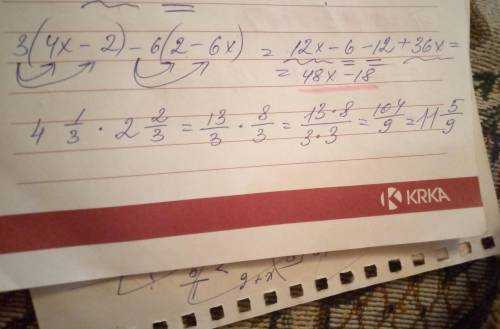 3(4x-2)-6(2-6x) = 12x-6-12+36x=
= 48x-18
4 1/3 · 2 2/3 = 13/3 · 8/3 = 13·8/3·3 = 104/9 = 11 5/9
KRKA